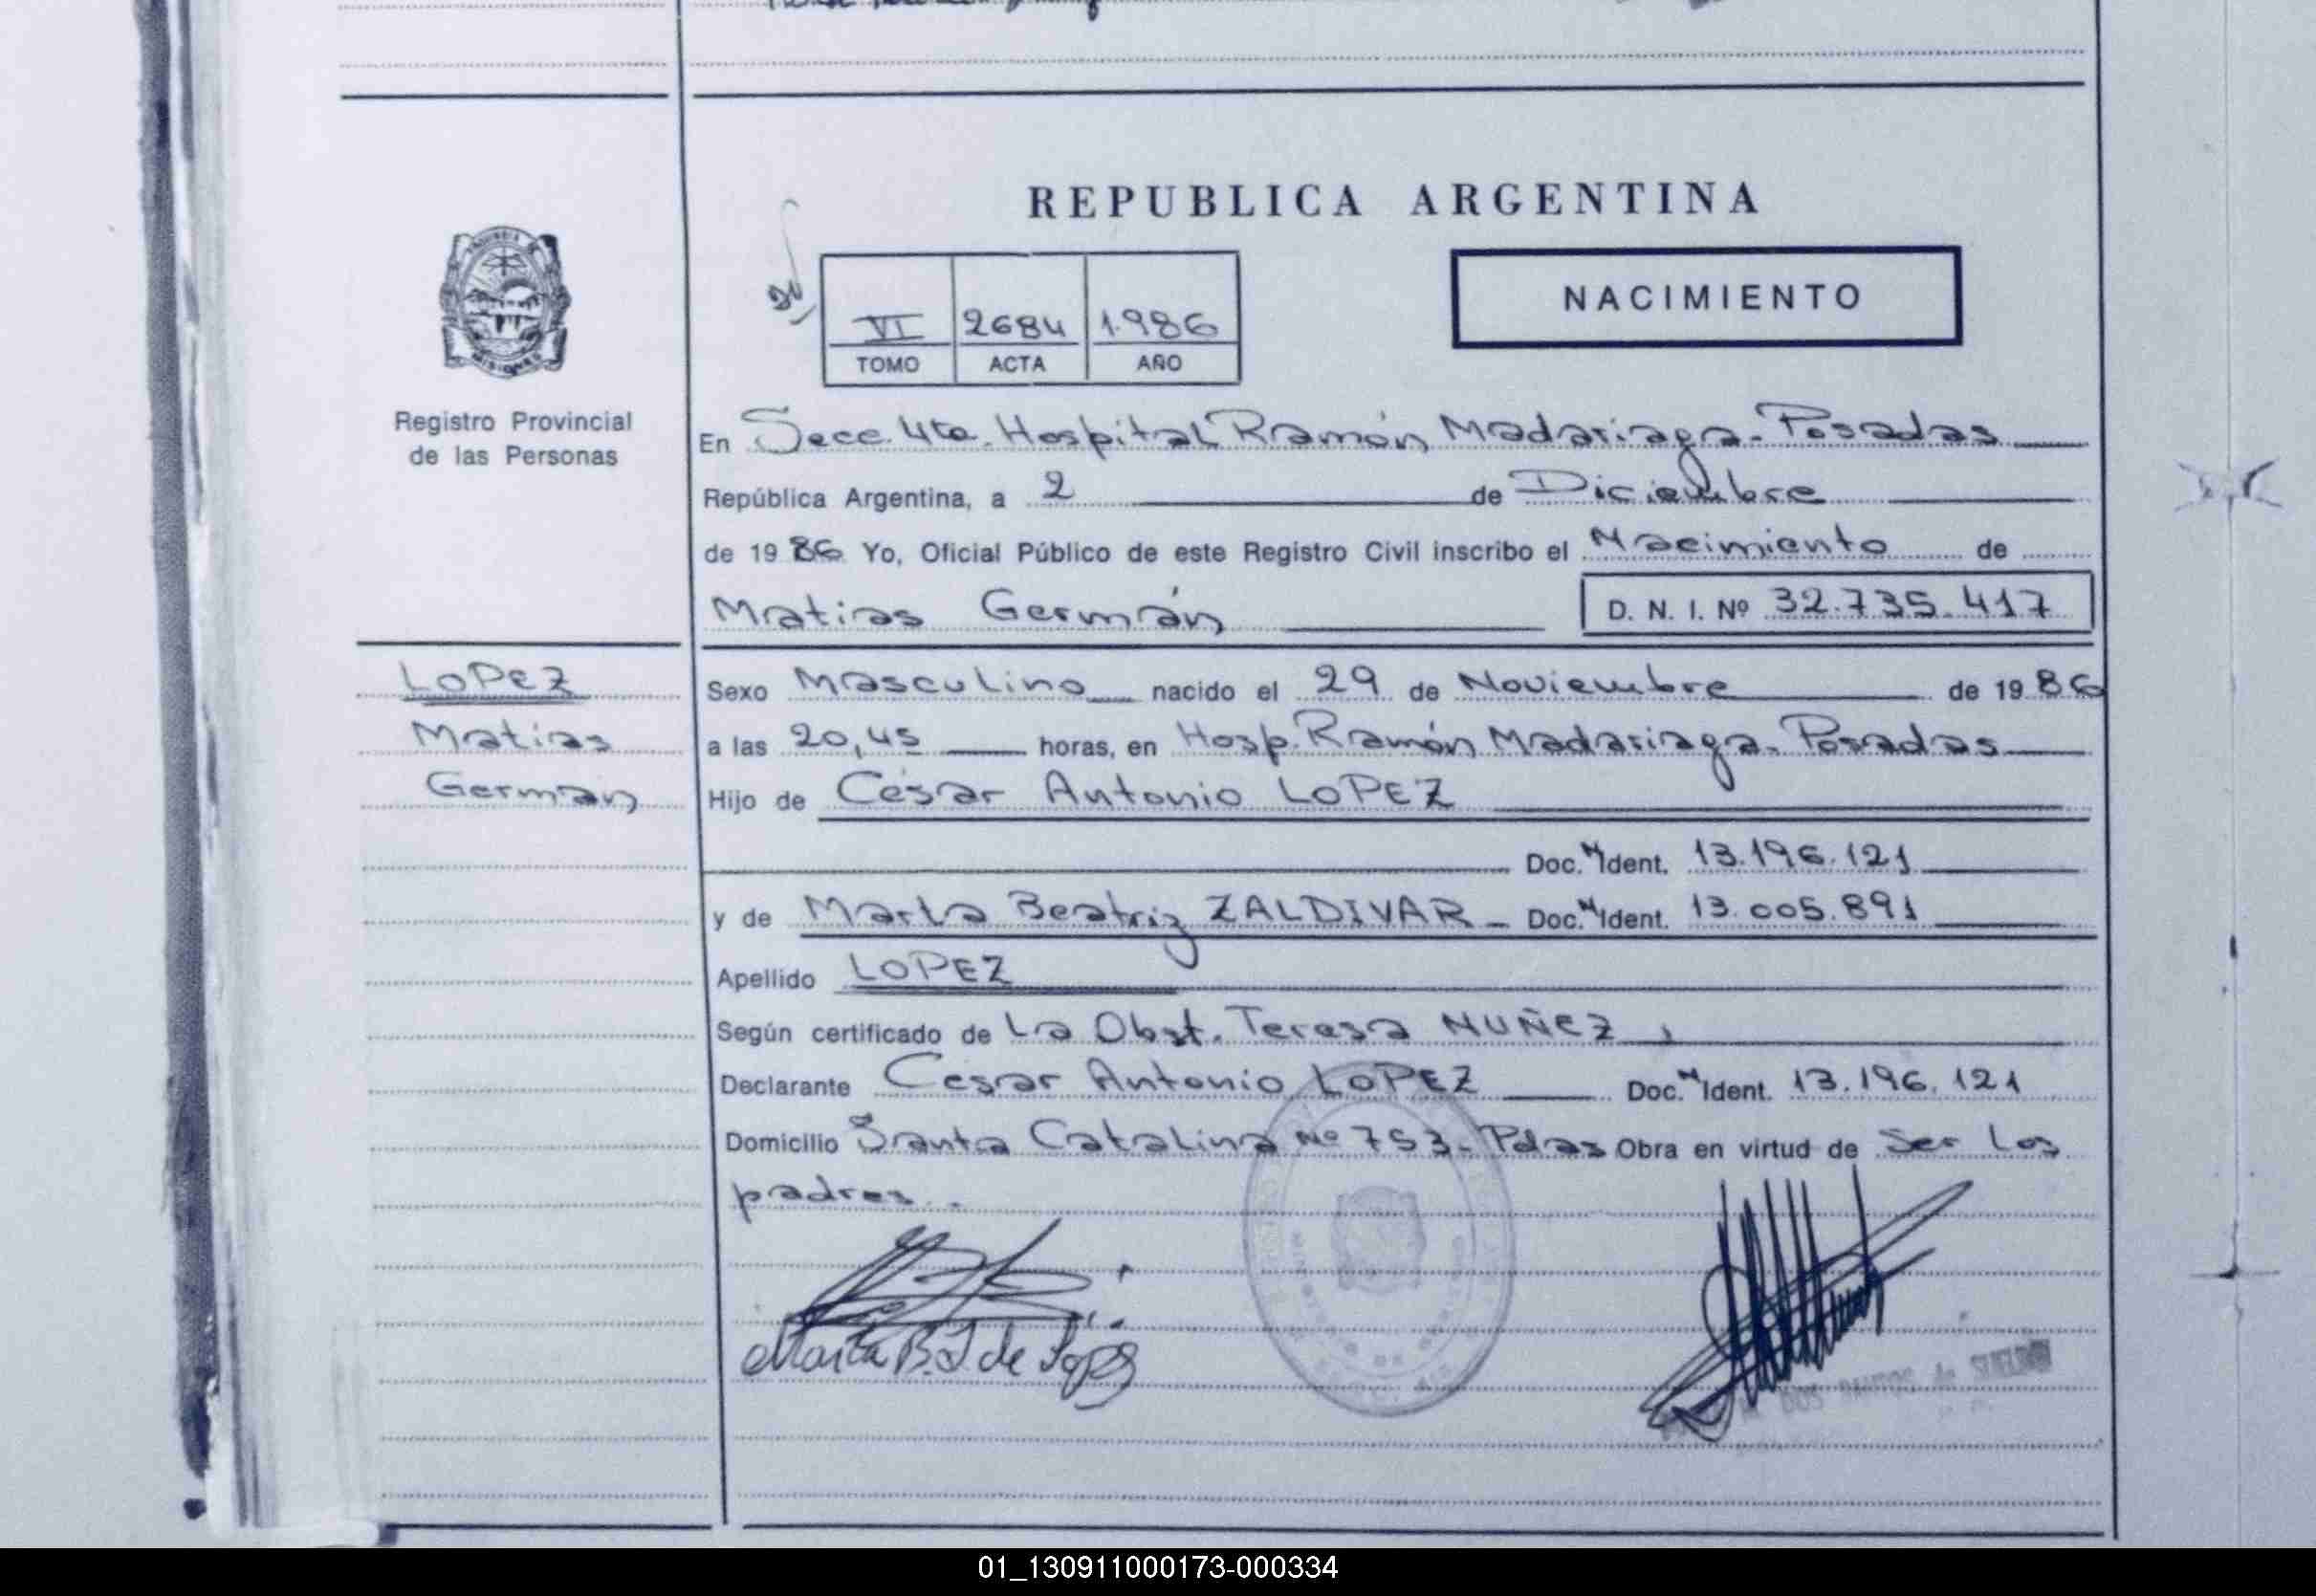 REPUBLICA ARGENTINA
NACIMIENTO
VI 2684 1.986
TOMO ACTA AÑO
Registro Provincial
de las Personas
En Secc. 4ta. Hospital Ramón Madariaga. Posadas
República Argentina, a 2 de Diciembre
de 19 86 Yo, Oficial Público de este Registro Civil inscribo el Nacimiento de
Matias Germán D. N. I. Nº 32.735.417
LOPEZ
Matias
German
Sexo Masculino nacido el 29 de Noviembre de 19 86
a las 20,45 horas, en Hosp. Ramón Madariaga. Posadas
Hijo de César Antonio LOPEZ
Doc. N Ident. 13.196.121
y de Marta Beatriz ZALDIVAR - Doc. N Ident. 13.005.891
Apellido LOPEZ
Según certificado de La Obst. Teresa NUÑEZ,
Declarante Cesar Antonio LOPEZ Doc. N Ident. 13.196.121
Domicilio Santa Catalina Nº 753- Pdas Obra en virtud de Ser los
padres.
Marta B. Z. de Lopez
DOS SANTOS de
01_130911000173-000334